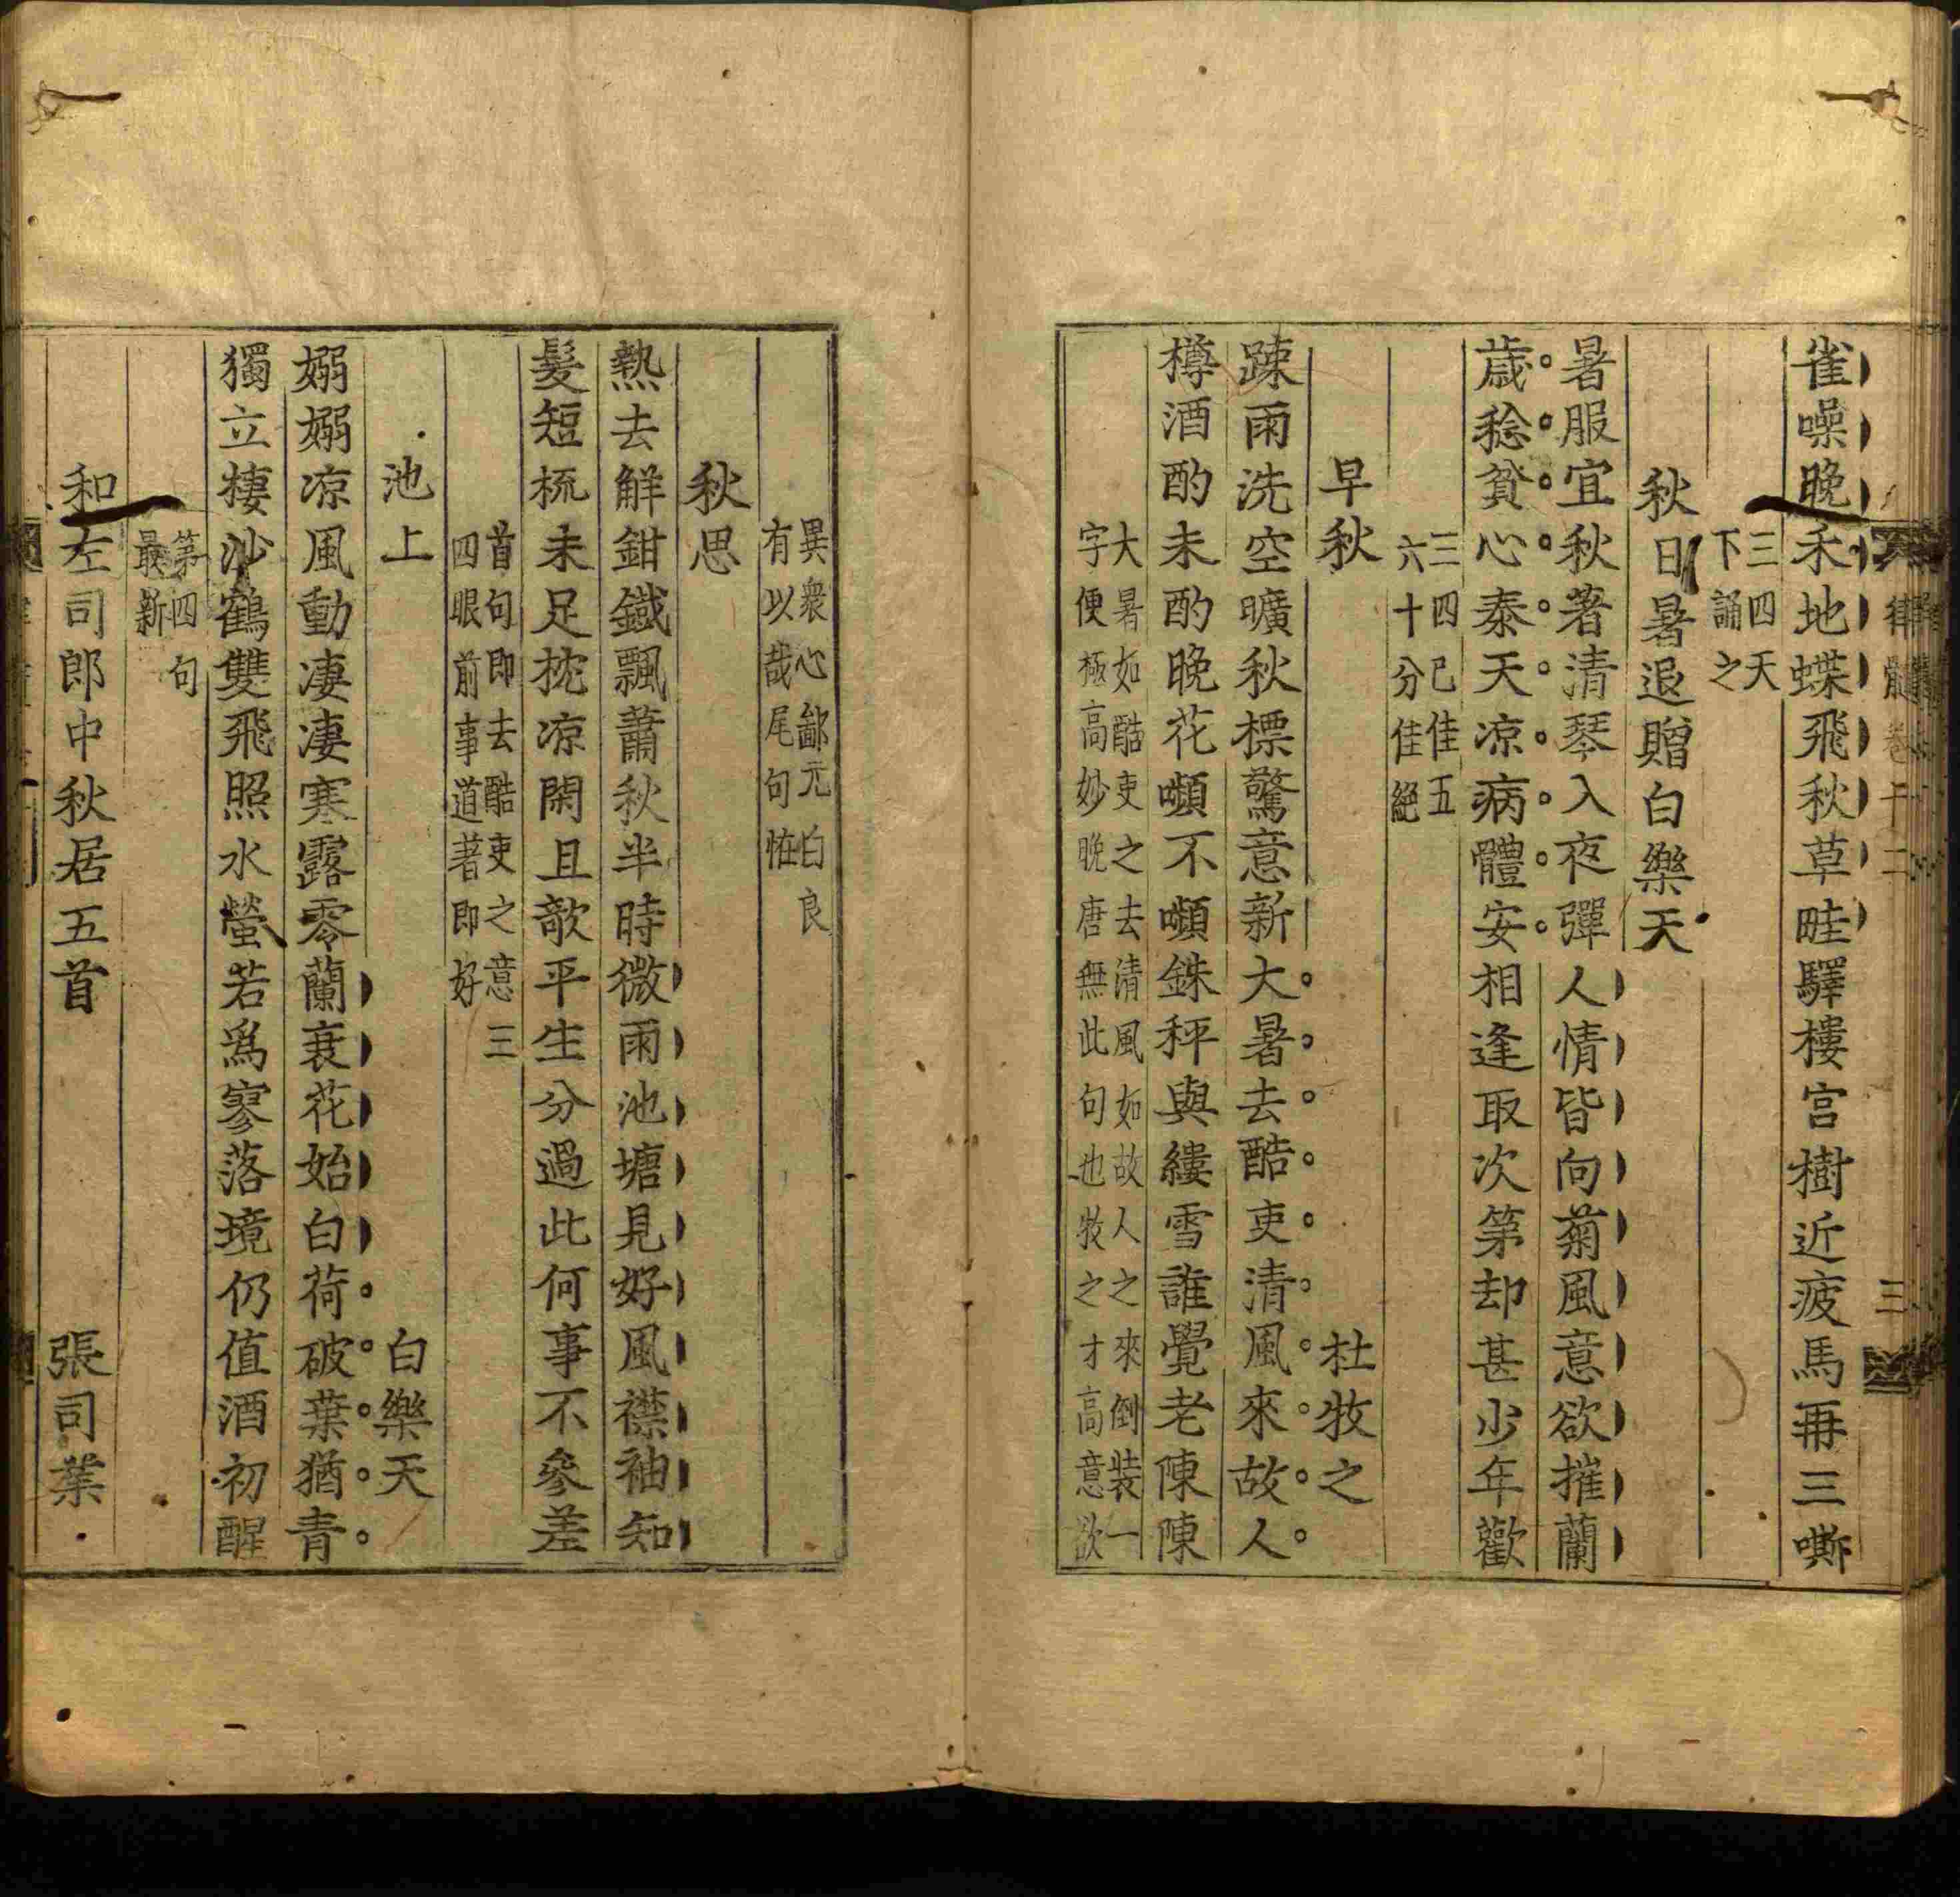 律髓卷十二
三
雀噪晚禾地蝶飛秋草畦驛樓宫樹近疲馬再三嘶
三四天
下誦之
秋日暑退贈白樂天
暑服宜秋著清琴入夜彈人情皆向菊風意欲摧蘭
歲稔貧心泰天凉病體安相逢取次第却甚少年歡
三四已佳五
六十分佳絕
早秋 杜牧之
踈雨洗空曠秋標驚意新大暑去酷吏清風來故人
樽酒酌未酌晚花嚬不嚬銖秤與縷雪誰覺老陳陳
大暑如酷吏之去清風如故人之來倒裝一
字便極高妙晚唐無此句也牧之才高意欲
異衆心鄙元白良
有以哉尾句怪
秋思
熱去解鉗鐵飄蕭秋半時微雨池塘見好風襟袖知
髮短梳未足枕凉閑且欹平生分過此何事不參差
首句即去酷吏之意三
四眼前事道著即好
池上 白樂天
嫋嫋凉風動凄凄寒露零蘭衰花始白荷破葉猶青
獨立棲沙鶴雙飛照水螢若爲寥落境仍值酒初醒
第四句
最新
和左司郎中秋居五首 張司業